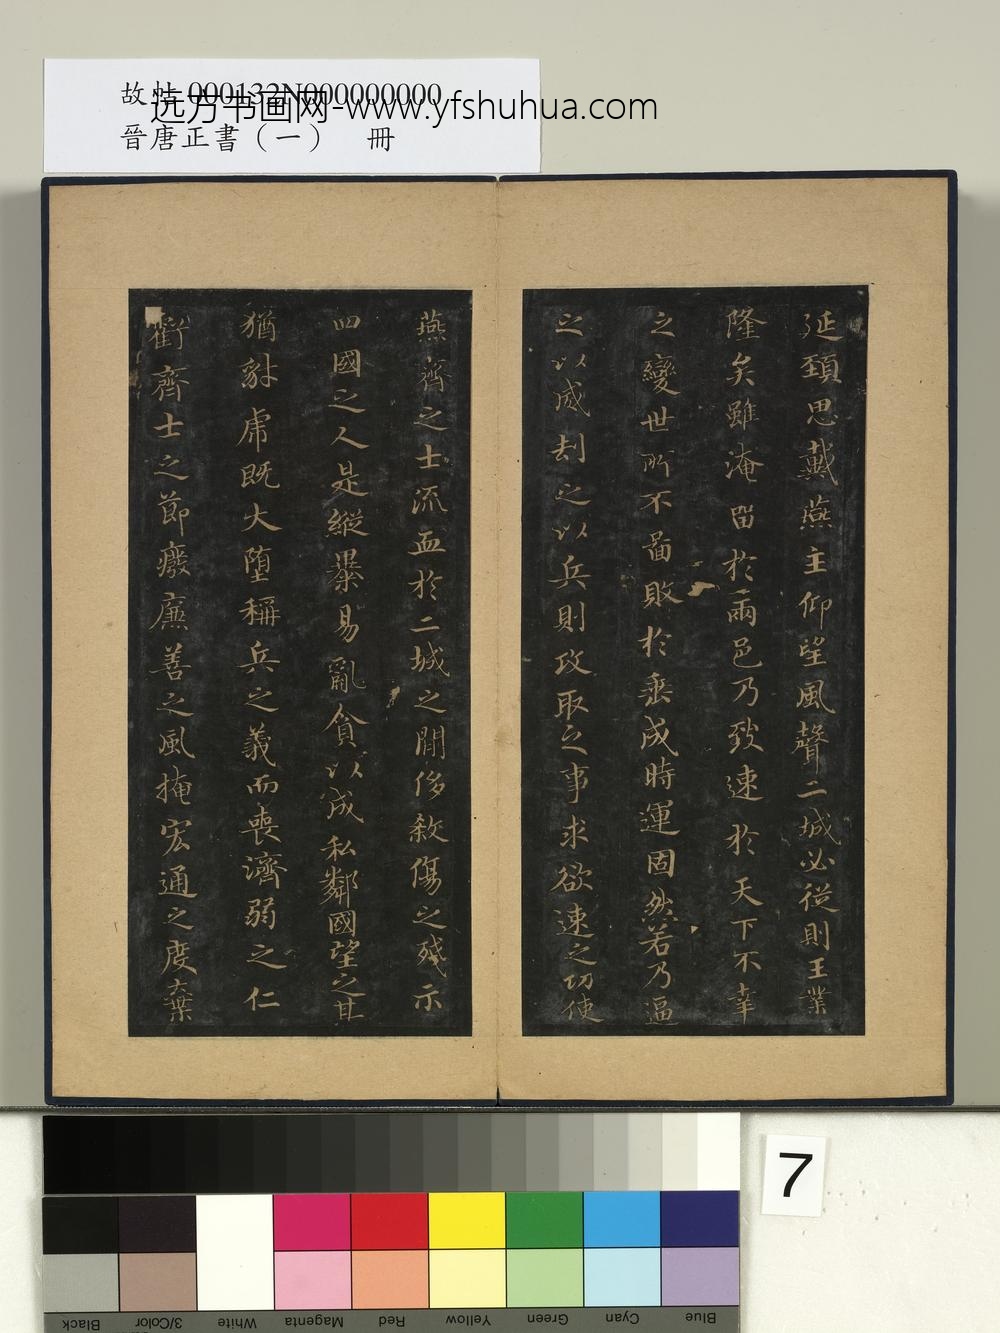 故帖 000132N000000000
远方书画网-www.yfshuhua.com
晉唐正書（一） 冊
延頚思戴燕主仰望風聲二城必従則王業
隆矣雖淹留於兩邑乃致速於天下不幸
之變世所不啚敗於垂成時運固然若乃逼
之以威刼之以兵則攻取之事求欲速之功使
燕齊之士流血於二城之閒侈敘傷之殘示
四國之人是縱暴易亂貪以成私鄰國望之其
猶豺虎既大堕稱兵之義而喪濟弱之仁
虧齊士之節癈廉善之風掩宏通之度棄
7
Black
3/Color
White
Magenta
Red
Yellow
Green
Cyan
Blue